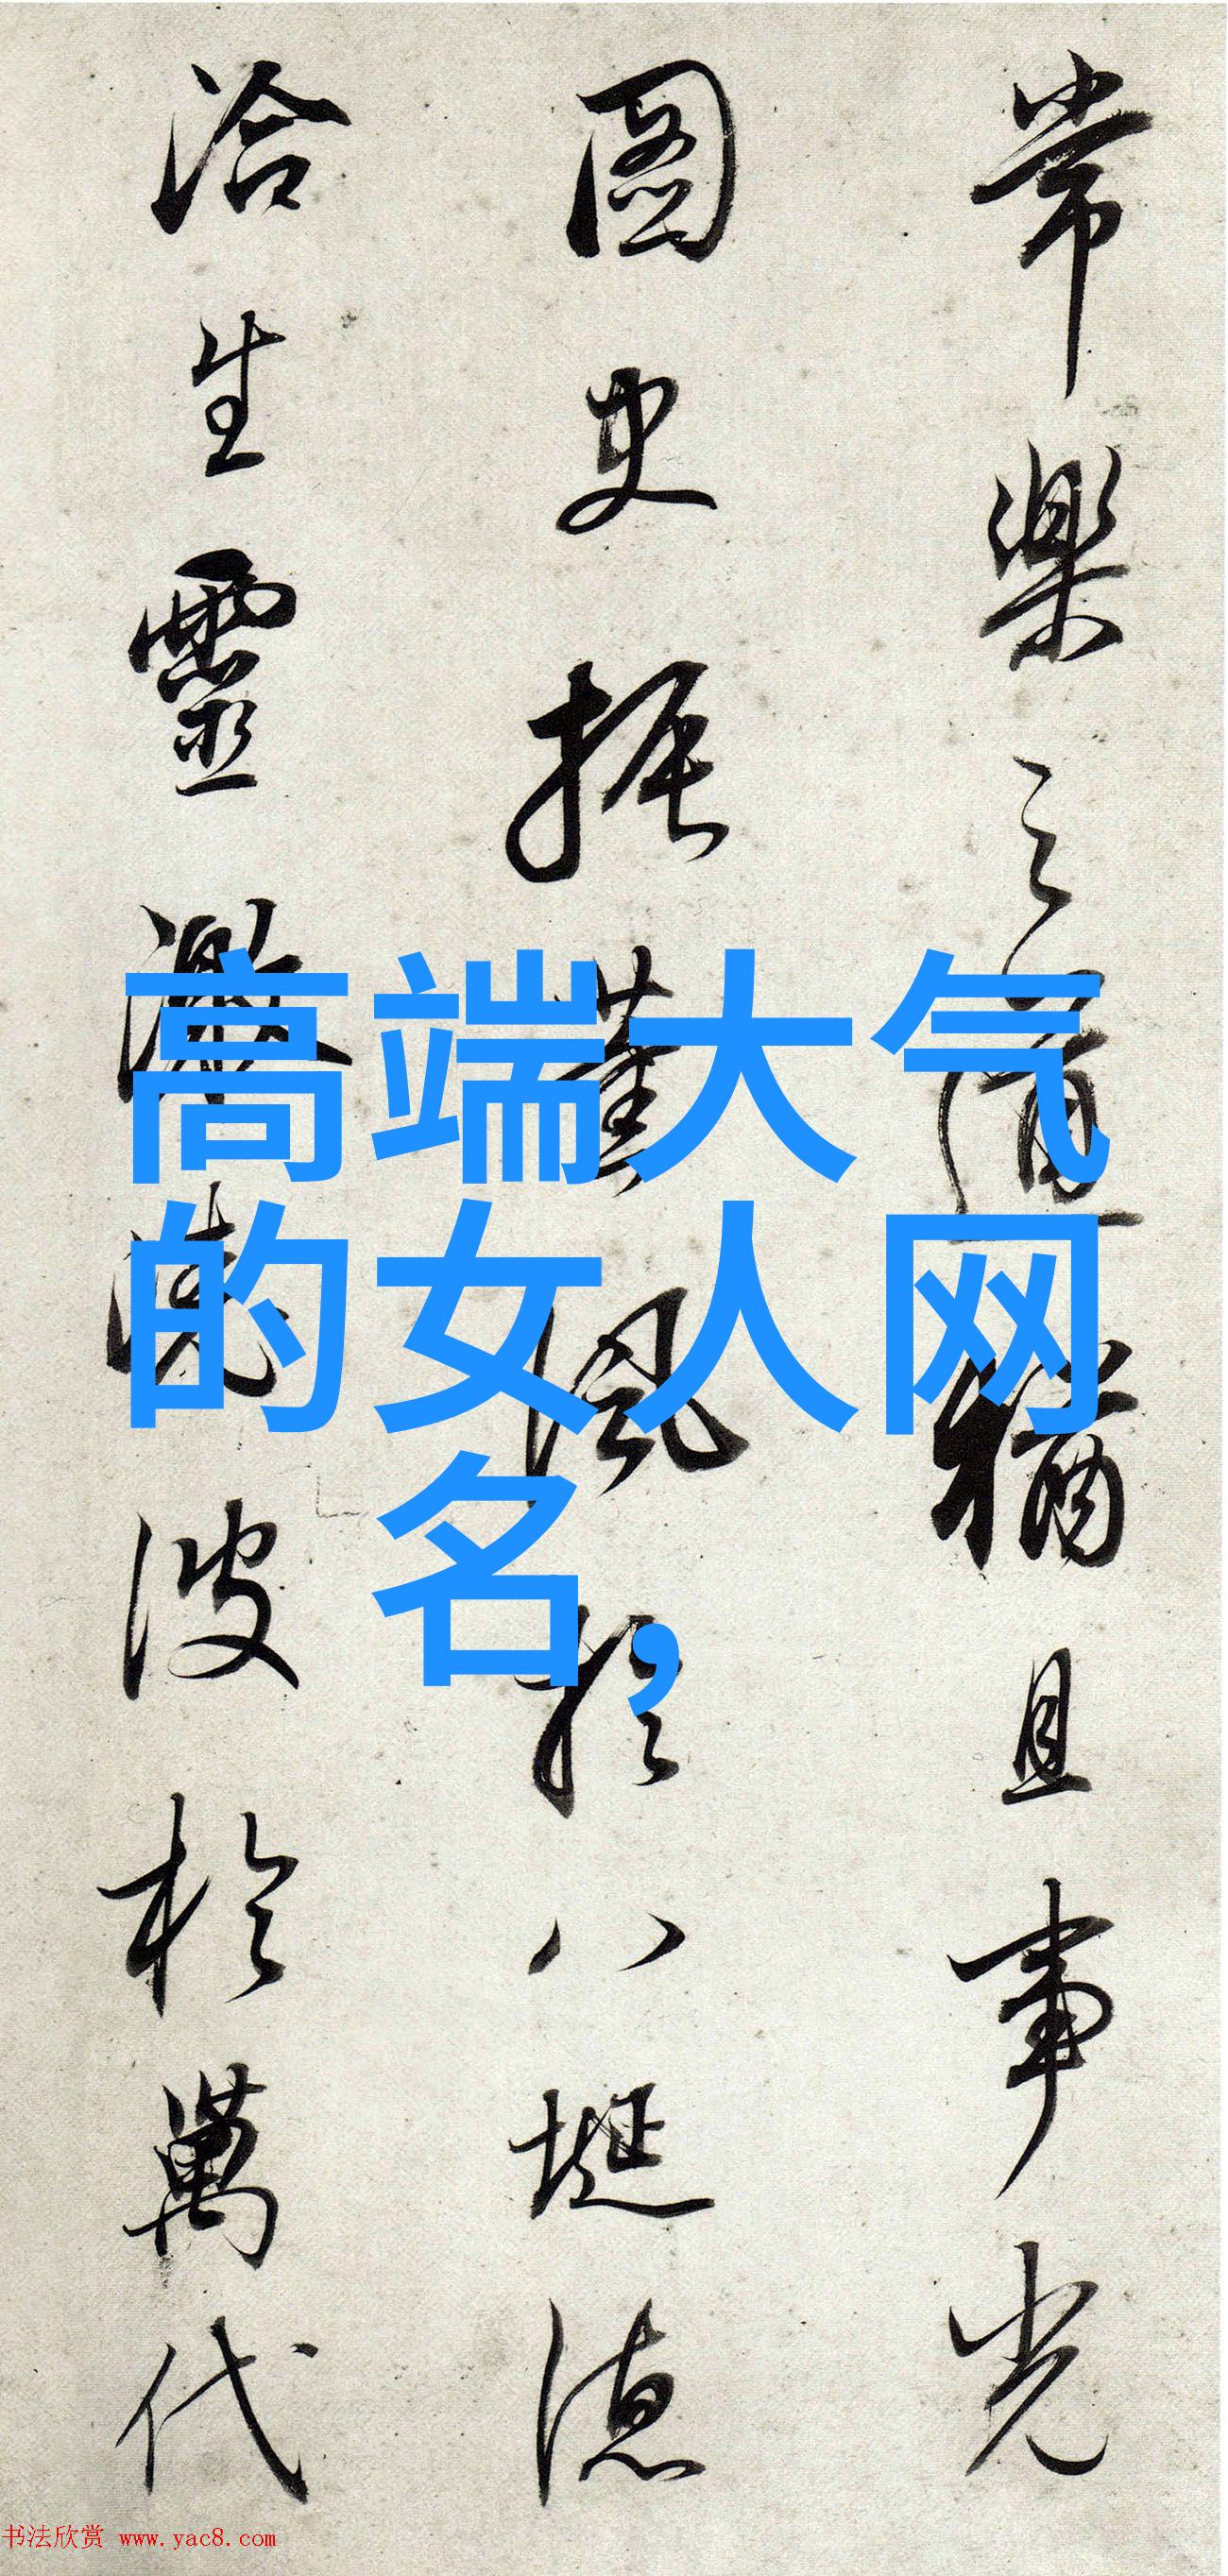 常樂之道猶且事光
圖史振風於八埏德
洽生靈激波於萬代
高端大气
的女人网
名,
书法欣赏 www.yac8.com